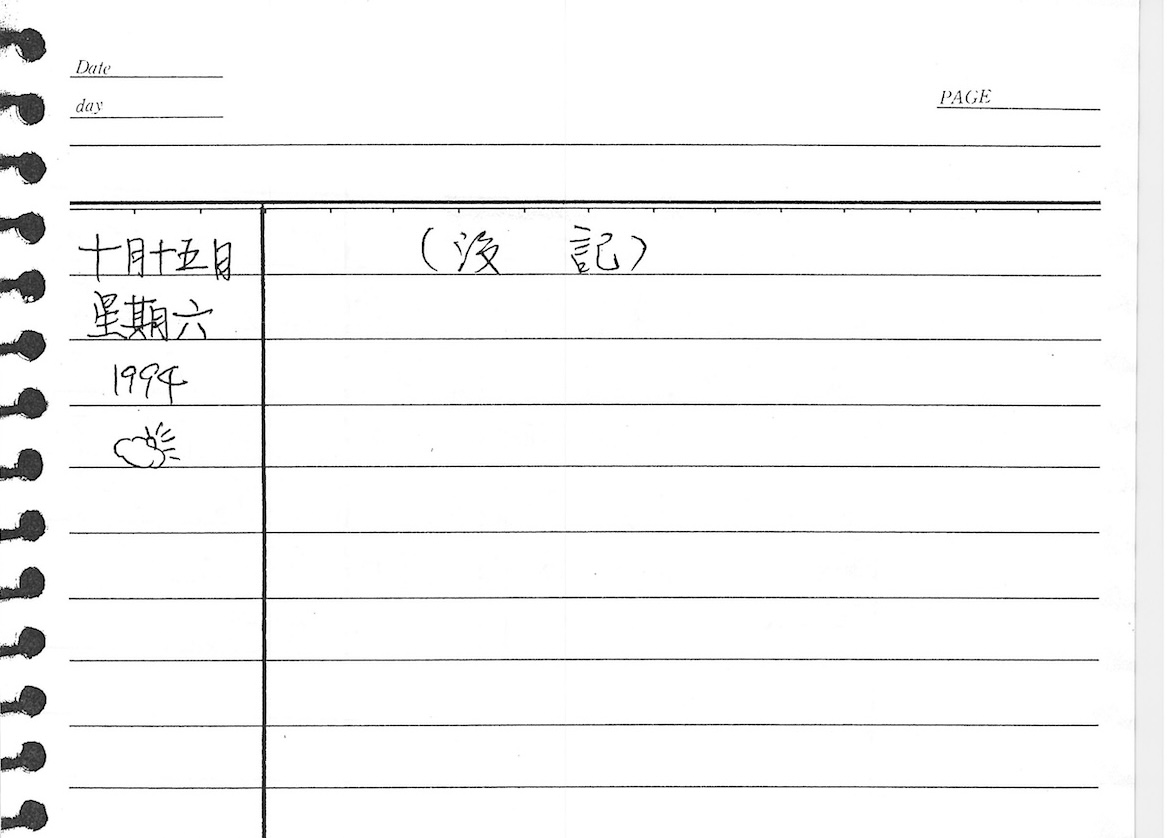 Date
day
PAGE
十月十五日 (沒 記)
星期六
1994